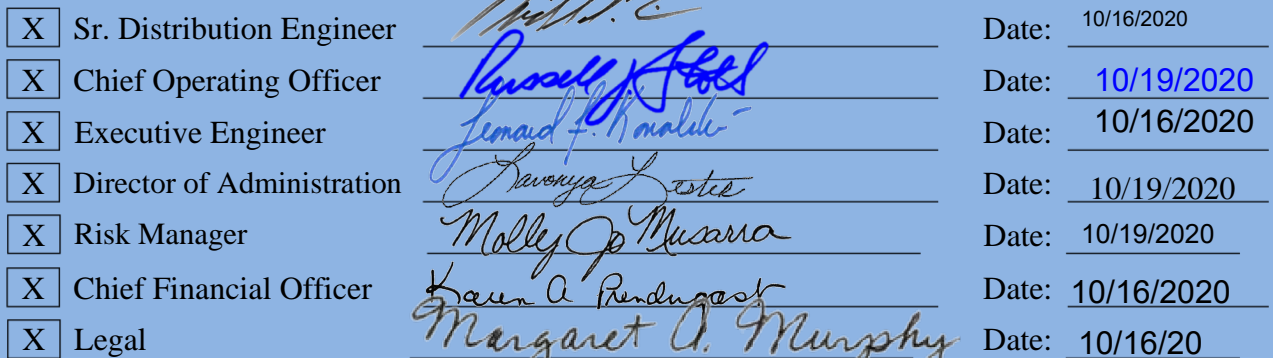 X Sr. Distribution Engineer Date: 10/16/2020
X Chief Operating Officer Russell J. Date: 10/19/2020
X Executive Engineer Date: 10/16/2020
X Director of Administration Lavonya Lester Date: 10/19/2020
X Risk Manager Molly Jo Musarra Date: 10/19/2020
X Chief Financial Officer Karen A Prendergast Date: 10/16/2020
X Legal Margaret A. Murphy Date: 10/16/20